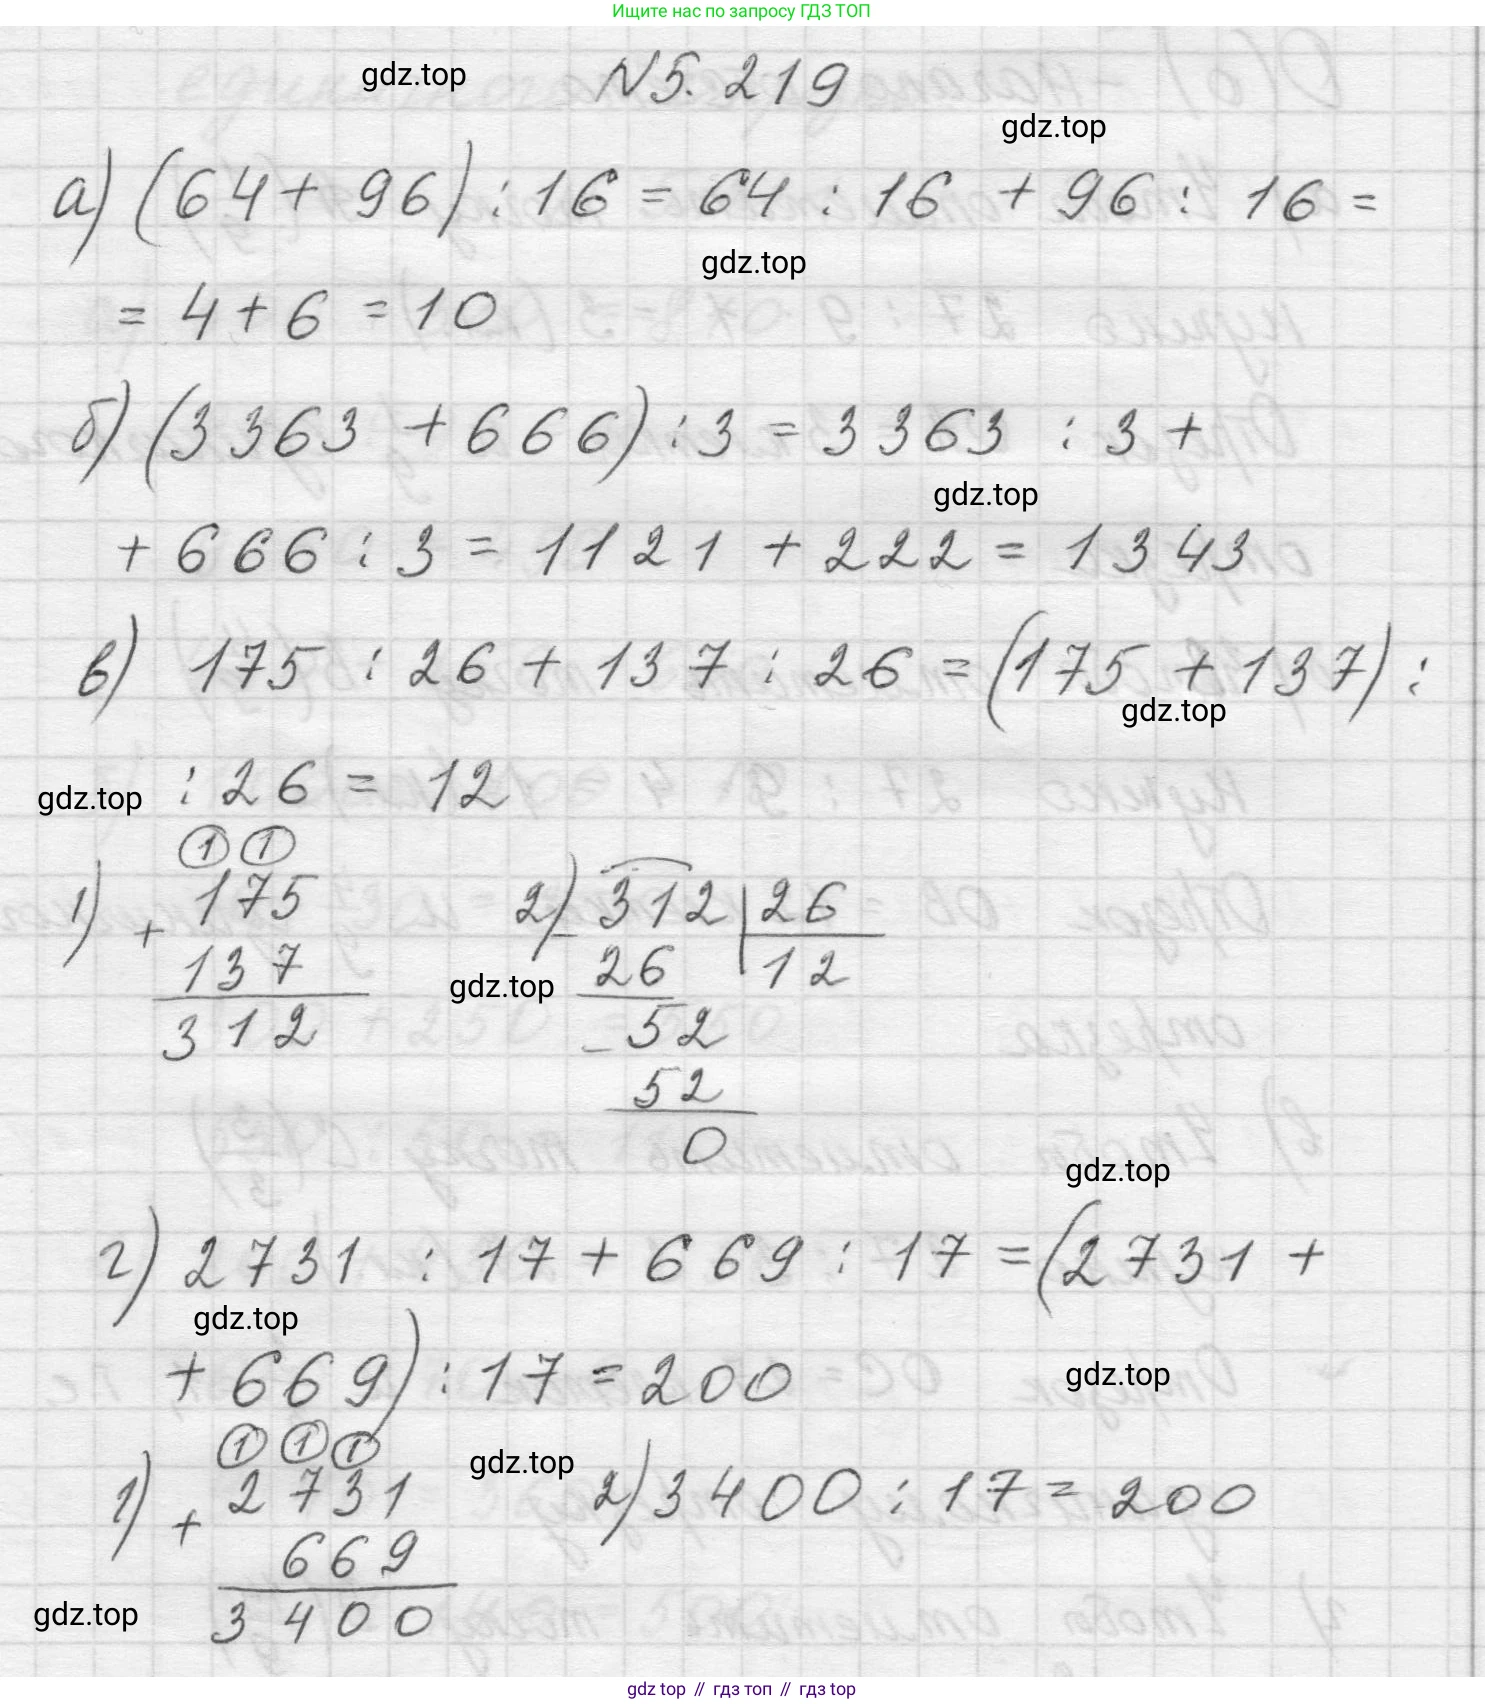 Ищите нас по запросу ГДЗ ТОП
gdz.top
N5.219
gdz.top
а) (64 + 96) : 16 = 64 : 16 + 96 : 16 =
gdz.top
= 4 + 6 = 10
б) (3363 + 666) : 3 = 3363 : 3 +
gdz.top
+ 666 : 3 = 1121 + 222 = 1343
в) 175 : 26 + 137 : 26 = (175 + 137) :
gdz.top
gdz.top
: 26 = 12
1 1
1) + 175
137
312
2) - 312 | 26
26 12
gdz.top
- 52
52
0
gdz.top
г) 2731 : 17 + 669 : 17 = (2731 +
gdz.top
+ 669) : 17 = 200
gdz.top
1 1 1
gdz.top
1) + 2731
669
3400
2) 3400 : 17 = 200
gdz.top
gdz top // гдз топ // гдз top